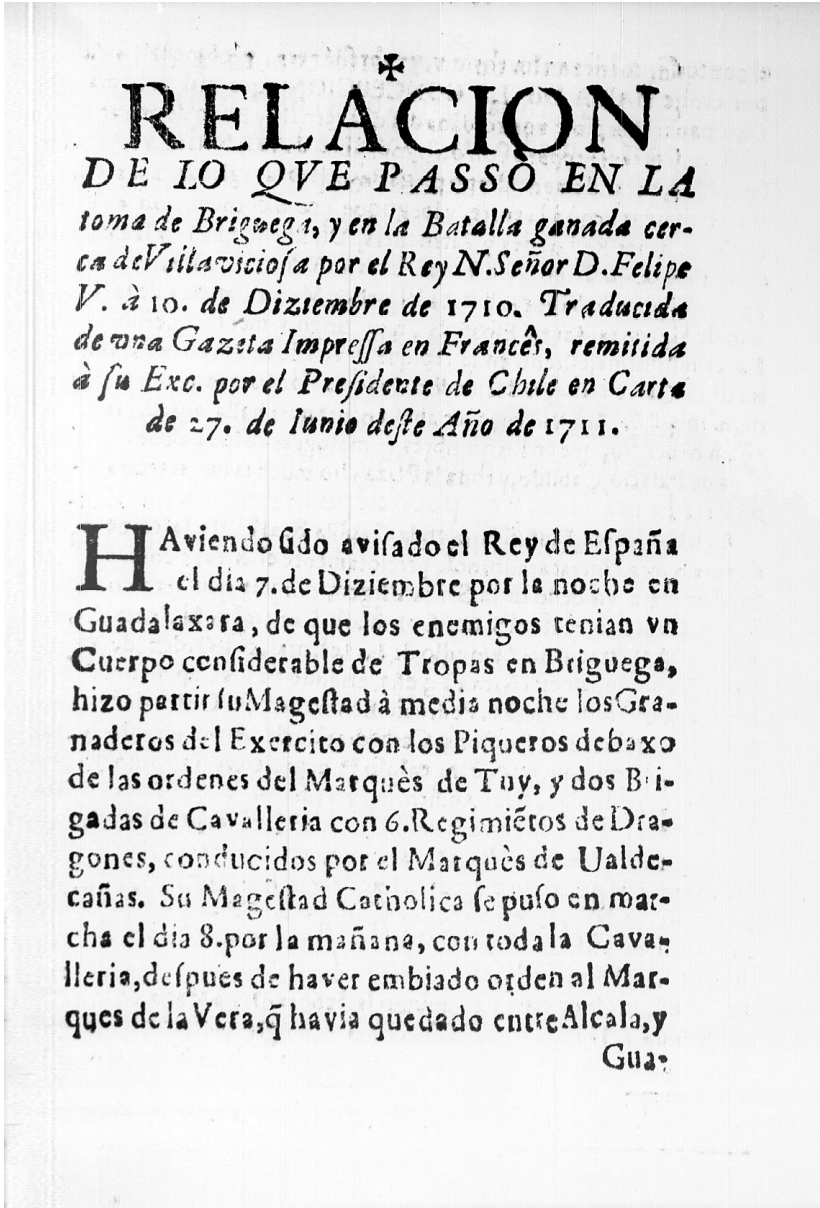 ✠
RELACION
DE LO QVE PASSÒ EN LA
toma de Briguega, y en la Batalla ganada cer-
ca de Villaviciosa por el Rey N. Señor D. Felipe
V. à 10. de Diziembre de 1710. Traducida
de vna Gazeta Impressa en Francês, remitida
à su Exc. por el Presidente de Chile en Carta
de 27. de Iunio deste Año de 1711.
HAviendo sido avisado el Rey de España
el dia 7. de Diziembre por la noche en
Guadalaxara, de que los enemigos tenian vn
Cuerpo considerable de Tropas en Briguega,
hizo partir su Magestad à media noche los Gra-
naderos del Exercito con los Piqueros debaxo
de las ordenes del Marquès de Tuy, y dos Bri-
gadas de Cavalleria con 6. Regimiẽtos de Dra-
gones, conducidos por el Marquès de Ualde-
cañas. Su Magestad Catholica se puso en mar-
cha el dia 8. por la mañana, con toda la Cava-
lleria, despues de haver embiado orden al Mar-
ques de la Vera, q̃ havia quedado entre Alcala, y
Gua-